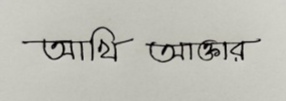 আখি আক্তার